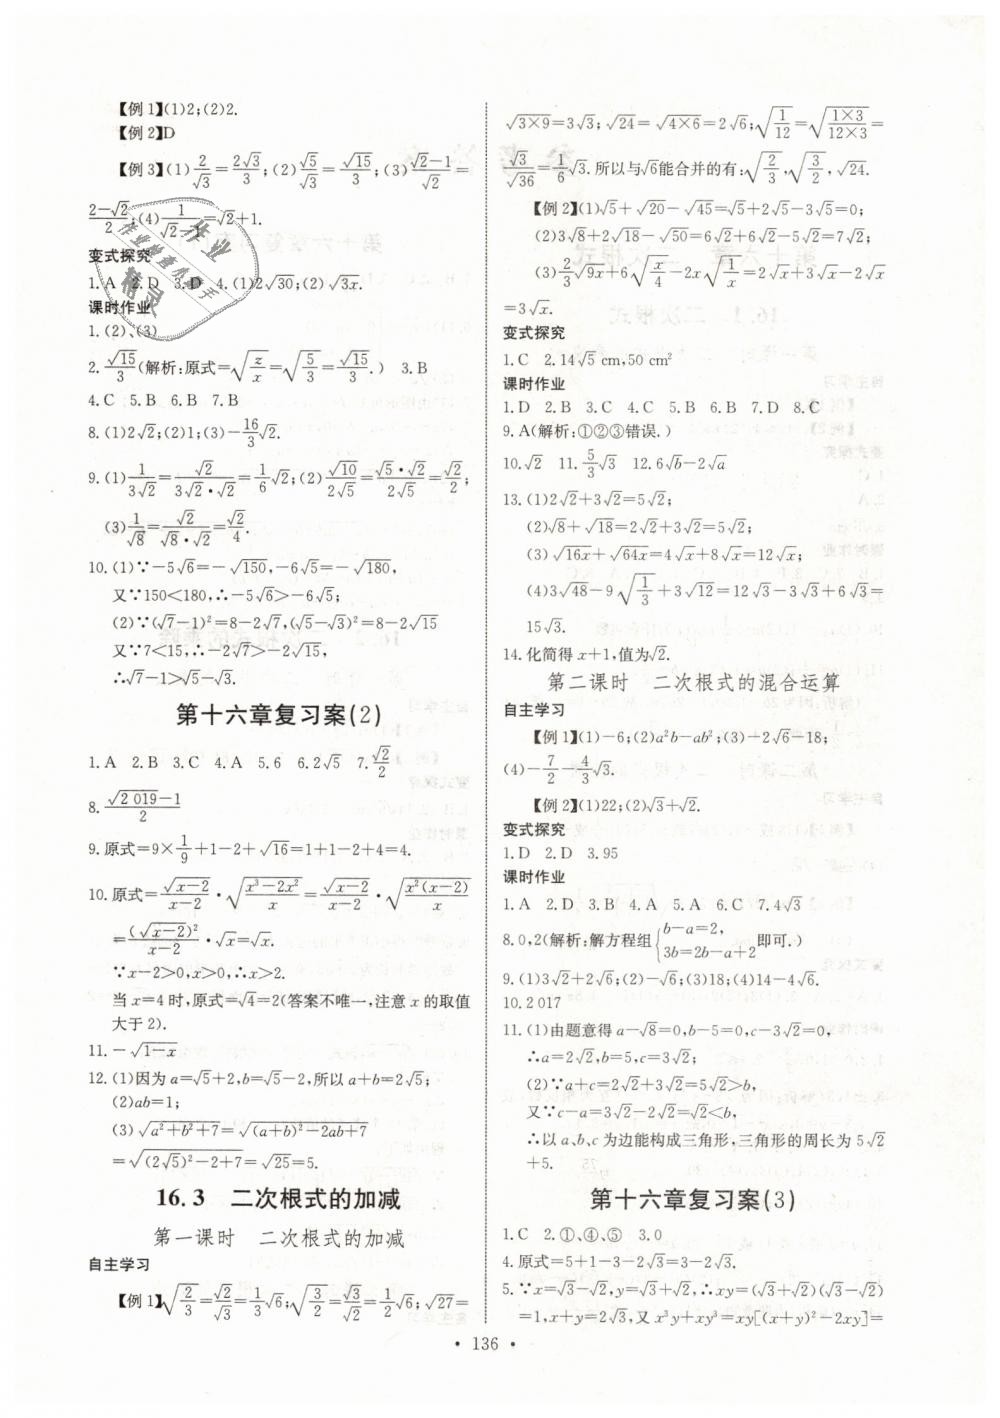 【例1】(1)2;(2)2.
【例2】D
【例3】(1)2/√3=2√3/3;(2)√5/√3=√15/3;(3)(√2-1)/√2=
(2-√2)/2;(4)1/(√2-1)=√2+1.
变式探究
1.A 2.D 3.D 4.(1)2√30;(2)√3x.
课时作业
1.(2)、(3)
2.√15/3(解析:原式=√(z/x)=√(5/3)=√15/3.) 3.B
4.C 5.B 6.B 7.B
8.(1)2√2;(2)1;(3)-16/3√2.
9.(1)1/(3√2)=√2/(3√2·√2)=1/6√2;(2)√10/(2√5)=(√5·√2)/(2√5)=√2/2;
(3)1/√8=√2/(√8·√2)=√2/4.
10.(1)∵-5√6=-√150,-6√5=-√180,
又∵150<180,∴-5√6>-6√5;
(2)∵(√7-1)²=8-2√7,(√5-√3)²=8-2√15
又∵7<15,∴-2√7>-2√15,
∴√7-1>√5-√3.
第十六章复习案(2)
1.A 2.B 3.C 4.A 5.6 6.2√5 7.√2/2
8.(√2 019-1)/2
9.原式=9×1/9+1-2+√16=1+1-2+4=4.
10.原式=√(x-2)/(x-2)·√((x³-2x²)/x)=√(x-2)/(x-2)·√(x²(x-2)/x)
=(√(x-2))²/(x-2)·√x=√x.
∵x-2>0,x>0,∴x>2.
当x=4时,原式=√4=2(答案不唯一,注意x的取值
大于2).
11.-√(1-x)
12.(1)因为a=√5+2,b=√5-2,所以a+b=2√5;
(2)ab=1;
(3)√(a²+b²+7)=√((a+b)²-2ab+7)
=√((2√5)²-2+7)=√25=5.
16.3 二次根式的加减
第一课时 二次根式的加减
自主学习
【例1】√(2/3)=√2/√3=1/3√6;√(3/2)=√3/√2=1/2√6;√27=
√(3×9)=3√3;√24=√(4×6)=2√6;√(1/12)=√((1×3)/(12×3))=
√3/√36=1/6√3.所以与√6能合并的有:√(2/3),√(3/2),√24.
【例2】(1)√5+√20-√45=√5+2√5-3√5=0;
(2)3√8+2√18-√50=6√2+6√2-5√2=7√2;
(3)2/3√9x+6√(x/4)-2x√(1/x)=2√x+3√x-2√x
=3√x.
变式探究
1.C 2.14√5 cm,50 cm²
课时作业
1.D 2.B 3.C 4.C 5.B 6.B 7.D 8.C
9.A(解析:①②③错误.)
10.√2 11.5/3√3 12.6√b-2√a
13.(1)2√2+3√2=5√2;
(2)√8+√18=2√2+3√2=5√2;
(3)√16x+√64x=4√x+8√x=12√x;
(4)3√48-9√(1/3)+3√12=12√3-3√3+6√3=
15√3.
14.化简得x+1,值为√2.
第二课时 二次根式的混合运算
自主学习
【例1】(1)-6;(2)a²b-ab²;(3)-2√6-18;
(4)-7/2-4/3√3.
【例2】(1)22;(2)√3+√2.
变式探究
1.D 2.D 3.95
课时作业
1.A 2.D 3.B 4.A 5.A 6.C 7.4√3
8.0,2(解析:解方程组{b-a=2, 3b=2b-a+2 即可.)
9.(1)3√2+2√6;(2)-√6;(3)18;(4)14-4√6.
10.2 017
11.(1)由题意得a-√8=0,b-5=0,c-3√2=0,
∴a=2√2,b=5,c=3√2;
(2)∵a+c=2√2+3√2=5√2>b,
又∵c-a=3√2-2√2=√2<b,
∴以a、b、c为边能构成三角形,三角形的周长为5√2
+5.
第十六章复习案(3)
1.C 2.①、④、⑤ 3.0
4.原式=5+1-3-2√3=3-2√3.
5.∵x=√3-√2,y=√3+√2,∴xy=(√3+√2)(√3-√2)
=1,x+y=2√3,又x³y+xy³=xy[(x+y)²-2xy]=
• 136 •
作业
作业检查小助手
精灵